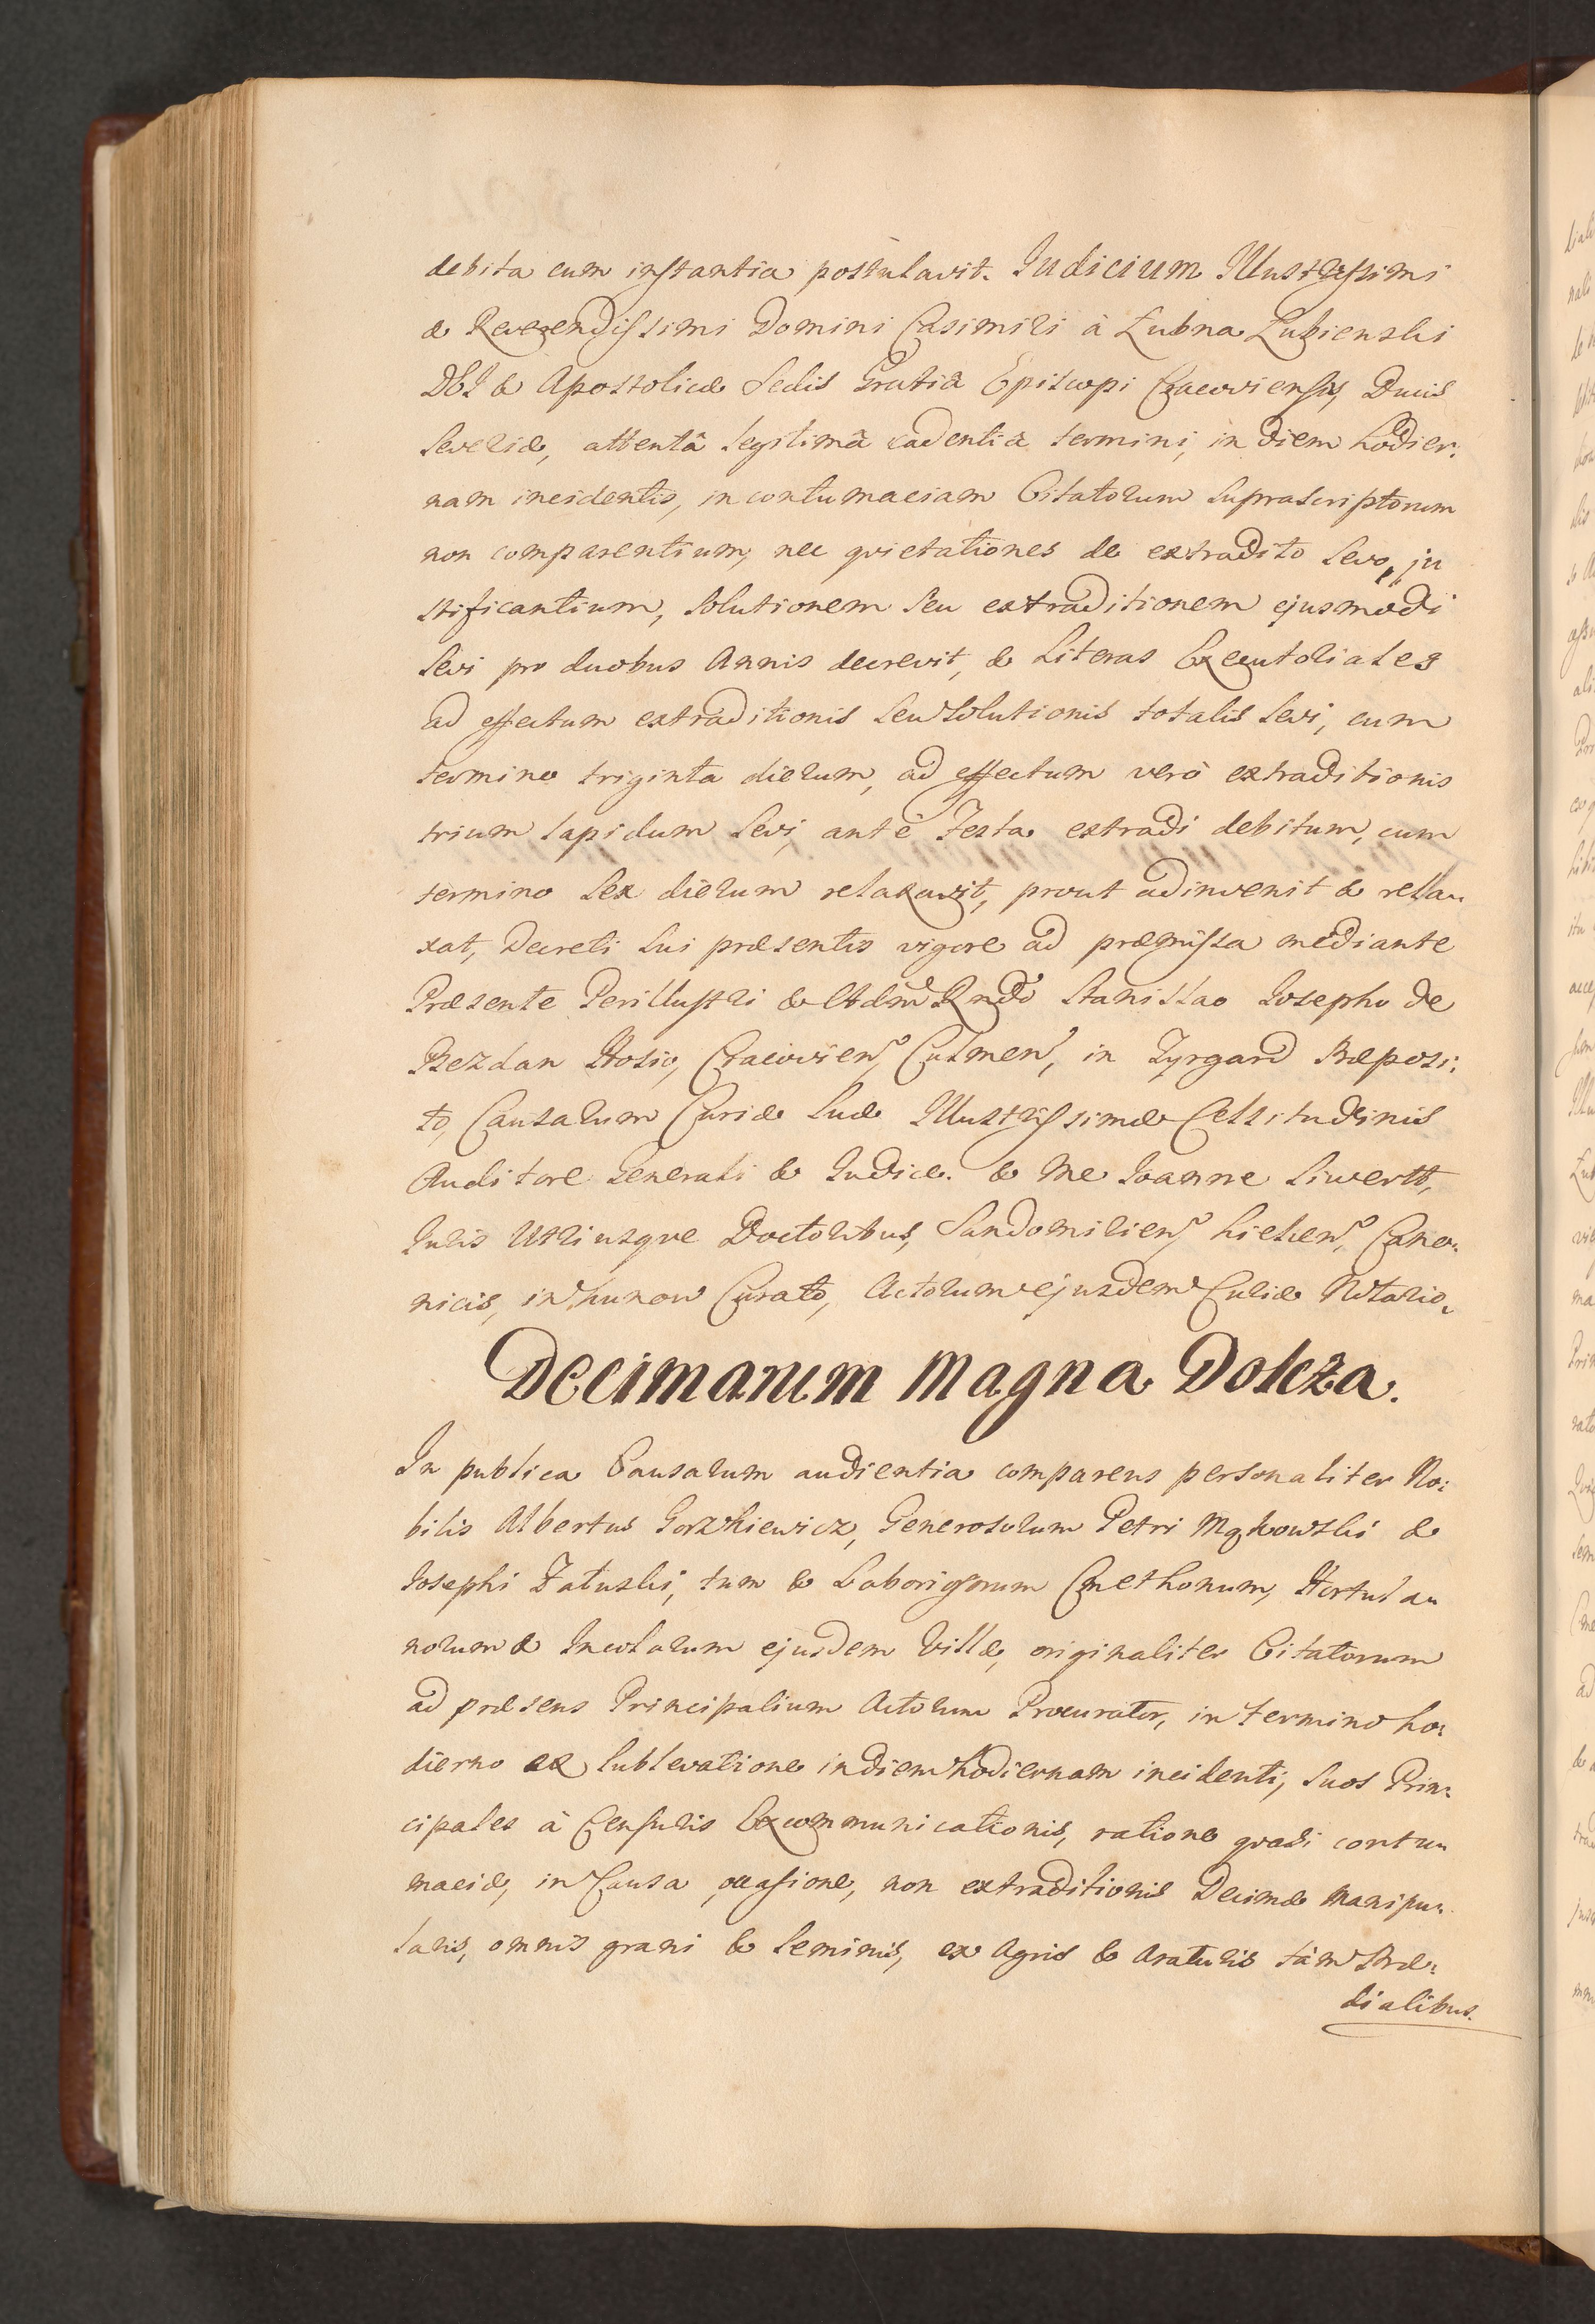 debita cum instantia postulavit. Judicium Illustrissimi
& Reverendissimi Domini Casimiri à Łubna Łubienski
DEI & Apostolicæ Sedis Gratiâ Episcopi Cracoviensis, Ducis
Severiæ, attentâ legitimâ cadentiâ termini, in diem hodier:
nam incidentis, in contumaciam Citatorum suprascriptorum
non comparentium, nec quietationes de extradito sevo, ju
stificantium, solutionem seu extraditionem ejusmodi
sevi pro duobus Annis decrevit, & Literas Executoriales
ad effectum extraditionis seu solutionis totalis sevi, cum
termino triginta dierum, ad effectum verò extraditionis
trium lapidum sevi, antè Festa extradi debitum, cum
termino sex dierum relaxavit, prout adinvenit & rella„
xat, Decreti sui præsentis vigore ad præmissa mediante
Præsente Perillustri & Adm Rndo Stanislao Josepho de
Bezdan Hosio, Cracovien, Culmen, in Zyrgard Præposi:
to, Causarum Curiæ suæ Illustrissimæ Celsitudinis
Auditore Generali & Judice. & Me Joanne Siwertt,
Juris Utriusque Doctoribus, Sandomirien, Kielcen, Cano:
nicis, in Kunow Curato, Actorum ejusdem Curiæ Notario.
Decimarum Magna Dołcza.
In publica Causarum audientia comparens personaliter No:
bilis Albertus Gorzkiewicz, Generosorum Petri Mąkowski &
Josephi Załuski, tum & Laboriosorum Cmethonum, Hortula„
norum & Incolarum ejusdem Villæ, originaliter Citatorum
ad præsens Principalium Actorum Procurator, in termino ho:
dierno ex sublevatione in diem hodiernam incidenti, suos Prin:
cipales à Censuris Excommunicationis, ratione quasi contu„
maciæ, in Causa occasione, non extraditionis Decimæ Manipu„
laris, omnis grani & seminis, ex Agris & Araturis tàm Præ:
dialibus.